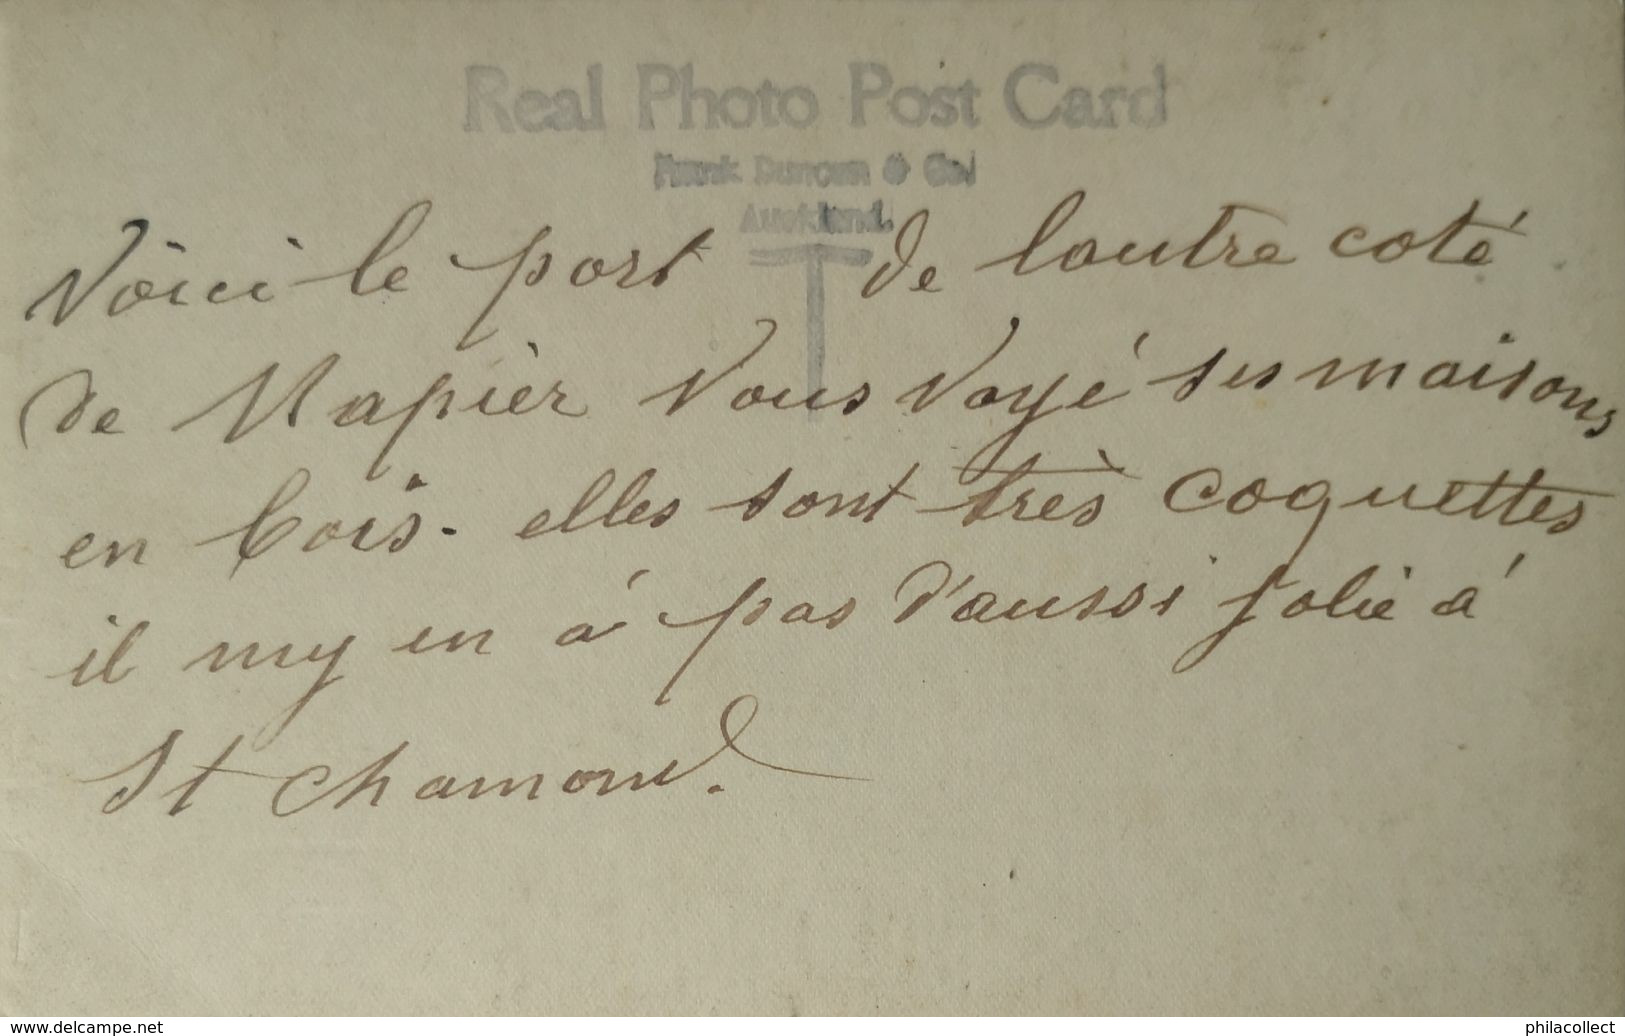 Real Photo Post Card
Frank Duncan & Co.
Auckland.
Voici le port de loutre coté
de Napièr Vous Voyé ses maisons
en bois. elles sont très coquettes
il my en á pas d'aussi jolie á
St chamond.
www.delcampe.net
philacollect